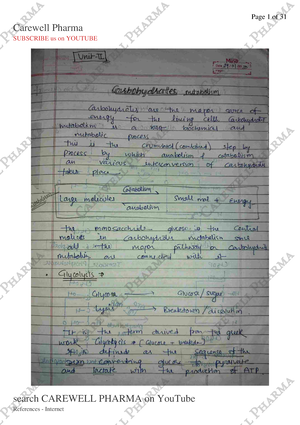 Page 1 of 31
Carewell Pharma
SUBSCRIBE us on YOUTUBE
Unit-II
Carbohydrates metabolism
Carbohydrates are the major source of
energy for the living cells. Carbohydrate
metabolism is a key biochemical and
metabolic process
this is the step by
process by which anabolism & catabolism
an various interconversion of carbohydrates
take place
Catabolism
Large molecules Small mol + Energy
anabolism
the monosaccharide glucose is the central
molecule in carbohydrate metabolism
all the major pathway of carbohydrate
metabolism are connected with it
Glycolysis →
Glucose / sugar
Breakdown / dissolution
It is the term derived from the greek
word
defined as the sequence of the
converting glucose to pyruvate
and lactate with the production of ATP
search CAREWELL PHARMA on YouTube
References - Internet